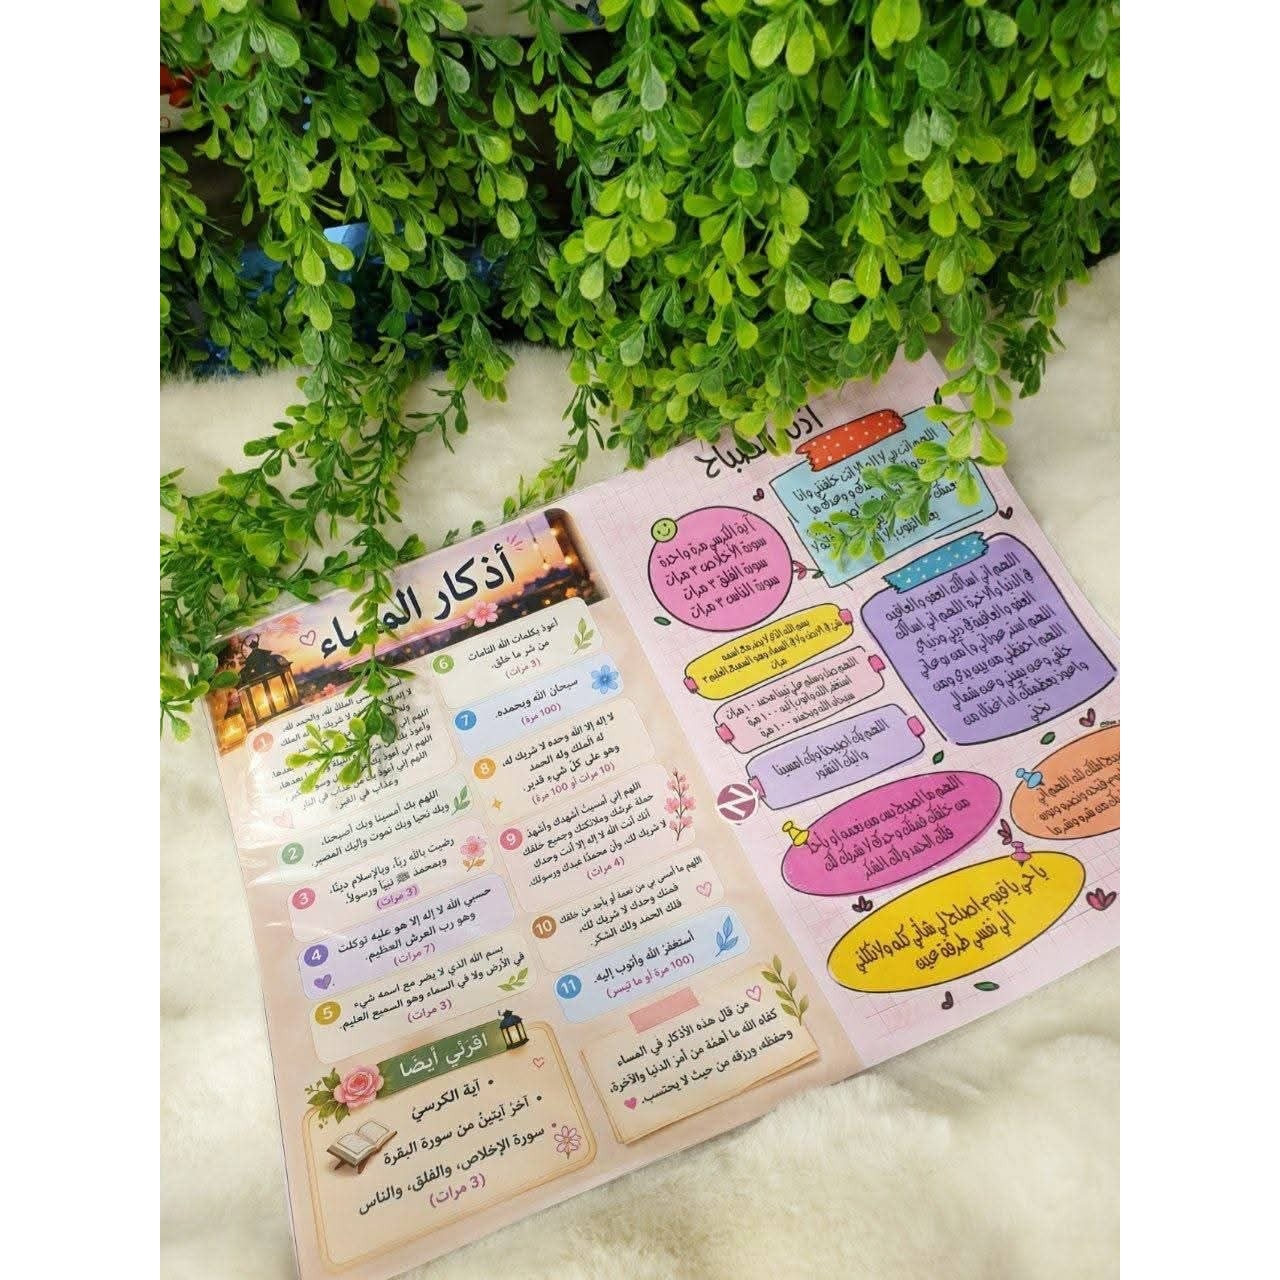 أذكار المساء
لا شريك له الملك
عذاب في النار
وعذاب في القبر.
2
اللهم بك أمسينا وبك أصبحنا،
وبك نحيا وبك نموت وإليك المصير.
3
رضيت بالله رباً، وبالإسلام ديناً،
وبمحمد ﷺ نبياً ورسولاً.
(3 مرات)
4
حسبي الله لا إله إلا هو عليه توكلت
وهو رب العرش العظيم.
(7 مرات)
5
بسم الله الذي لا يضر مع اسمه شيء
في الأرض ولا في السماء وهو السميع العليم.
(3 مرات)
6
أعوذ بكلمات الله التامات
من شر ما خلق.
(3 مرات)
7
سبحان الله وبحمده.
(100 مرة)
8
لا إله إلا الله وحده لا شريك له،
له الملك وله الحمد
وهو على كل شيء قدير.
(10 مرات أو 100 مرة)
9
اللهم إني أمسيت أشهدك وأشهد
حملة عرشك وملائكتك وجميع خلقك
أنك أنت الله لا إله إلا أنت وحدك
لا شريك لك، وأن محمدًا عبدك ورسولك.
(4 مرات)
10
اللهم ما أمسى بي من نعمة أو بأحد من خلقك
فمنك وحدك لا شريك لك،
فلك الحمد ولك الشكر.
11
أستغفر الله وأتوب إليه.
(100 مرة أو ما تيسر)
اقرئي أيضًا
• آية الكرسي
• آخر آيتين من سورة البقرة
• سورة الإخلاص، والفلق، والناس
(3 مرات)
من قال هذه الأذكار في المساء
كفاه الله ما أهمّه من أمر الدنيا والآخرة،
وحفظه، ورزقه من حيث لا يحتسب.
الصباح
اللهم انت ربي لا اله الا انت خلقتني وانا
آية الكرسي مرة واحدة
سورة الأخلاص ٣ مرات
سورة الفلق ٣ مرات
سورة الناس ٣ مرات
اللهم اني اسألك العفو والعافيه
في الدنيا والآخرة اللهم اني اسألك
العفو والعافية في ديني ودنياي
اللهم استر عوراتي وآمن روعاتي
اللهم احفظني من بين يدي ومن
خلفي وعن يميني وعن شمالي
واعوذ بعظمتك ان اغتال من
تحتي
بسم الله الذي لا يضر مع اسمه
شئ في الارض ولا في السماء وهو السميع العليم ٣
مرات
اللهم صل وسلم على نبينا محمد ١٠ مرات
استغفر الله واتوب إليه ١٠٠ مرة
سبحان الله وبحمده ١٠٠ مرة
اللهم بك اصبحنا وبك امسينا
واليك النشور
اللهم ما اصبح بي من نعمه أو بأحد
من خلقك فمنك وحدك لا شريك لك
فلك الحمد ولك الشكر
يا حي يا قيوم اصلح لي شأني كله ولا تكلني
الي نفسي طرفة عين